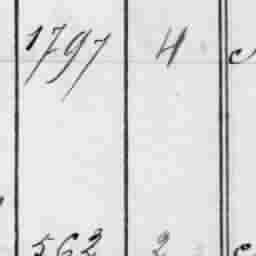 1797 4
562 2